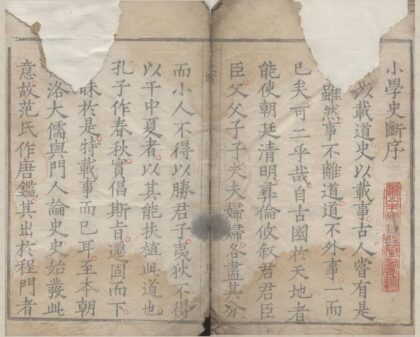 小學史斷序
以載道史以載事古人嘗有是
雖然事不離道道不外事一而
已矣可二乎哉自古國於天地者
能使朝廷清明彝倫攸叙君君臣
臣父父子子夫夫婦婦各盡其分
而小人不得以勝君子夷狄不得
以干中夏者以其能扶植此道也
孔子作春秋實倡斯肯遷固而下
昧於是特載事而已耳至本朝
洛大儒與門人論史史始發此
意故范氏作唐鑑其出於程門者